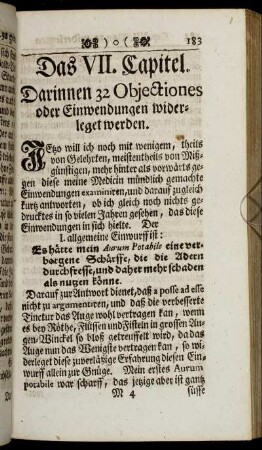 183
Das VII. Capitel.
Darinnen 32 Objectiones
oder Einwendungen wider-
leget werden.
JEtzo will ich noch mit wenigem, theils
von Gelehrten, meistentheils von Miß-
günstigen, mehr hinter als vorwärts ge-
gen diese meine Medicin mündlich gemachte
Einwendungen examiniren, und darauf zugleich
kurtz antworten, ob ich gleich noch nichts ge-
drucktes in so vielen Jahren gesehen, das diese
Einwendungen in sich hielte. Der
I. allgemeine Einwurff ist:
Es hätte mein Aurum Potabile eine ver-
borgene Schärffe, die die Adern
durchfresse, und daher mehr schaden
als nutzen könne.
Darauf zur Antwort dienet, daß a posse ad esse
nicht zu argumentiren, und daß die verbesserte
Tinctur das Auge wohl vertragen kan, wenn
es bey Röthe, Flüssen und Fisteln in grossen Au-
gen-Winckel so bloß getreuffelt wird, da das
Auge nun das Wenigste vertragen kan, so wi-
derleget diese zuverläßige Erfahrung diesen Ein-
wurff allein zur Gnüge. Mein erstes Aurum
potabile war scharff, das jetzige aber ist gantz
M 4 süsse